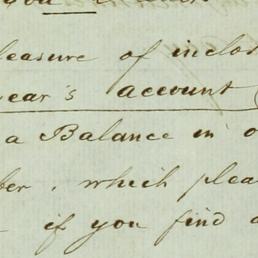 you
leasure of inclos
ear's account
a Balance in o
ber, which plea
if you find a